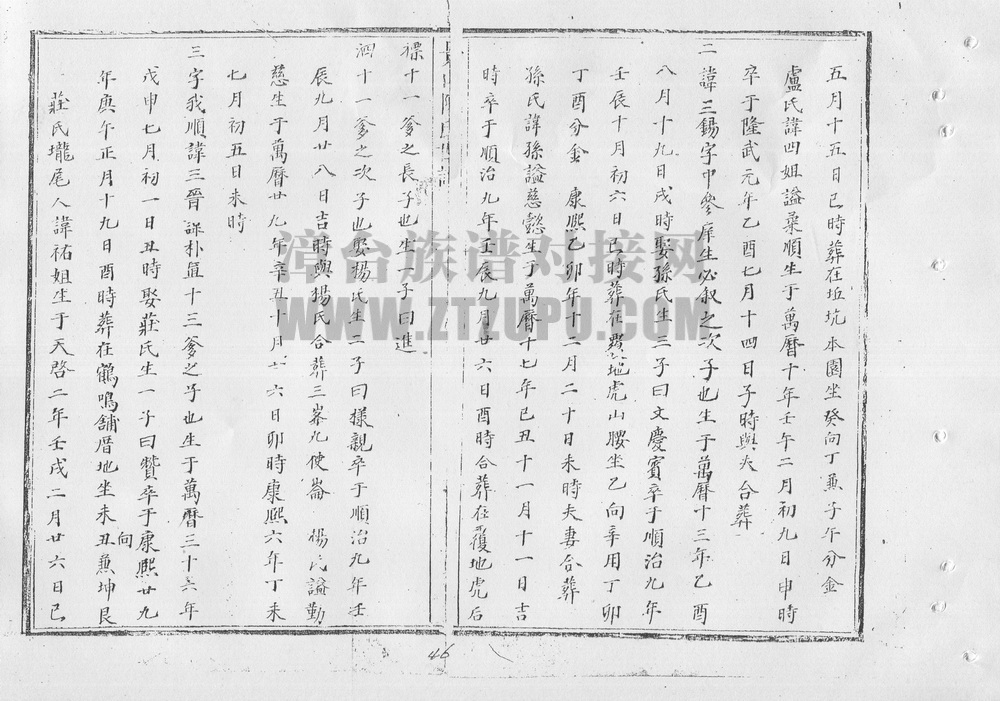 五月十五日巳時葬在坵坑本園坐癸向丁兼子午分金
盧氏諱四姐謚葉順生于萬曆十年壬午二月初九日申時
卒于隆武元年乙酉七月十四日子時與夫合葬
二諱三錫字中參庠生必敘之次子也生于萬曆十三年乙酉
八月十九日戌時娶孫氏生三子曰文慶賓卒于順治九年
壬辰十月初六日巳時葬在覆地虎山腰坐乙向辛用丁卯
丁酉分金 康熙乙卯年十二月二十日未時夫妻合葬
孫氏諱孫謚慈懿生于萬曆十七年己丑十一月十一日吉
時卒于順治九年壬辰九月廿六日酉時合葬在覆地虎后
標十一爹之長子也生一子曰進
泗十一爹之次子也娶楊氏生二子曰樣親卒于順治九年壬
辰九月廿八日吉時與楊氏合葬三峯九使崙 楊氏謚勤
慈生于萬曆廿九年辛丑十月六日卯時康熙六年丁未
七月初五日未時
三字我順諱三晉謚朴直十三爹之子也生于萬曆三十六年
戊申七月初一日丑時娶莊氏生一子曰贊卒于康熙廿九
年庚午正月十九日酉時葬在鶴鳴舖厝地坐未向丑兼坤艮
莊氏壠尾人諱祐姐生于天啓二年壬戌二月廿六日巳
46
漳台族谱对接网
WWW.ZTZUPU.COM